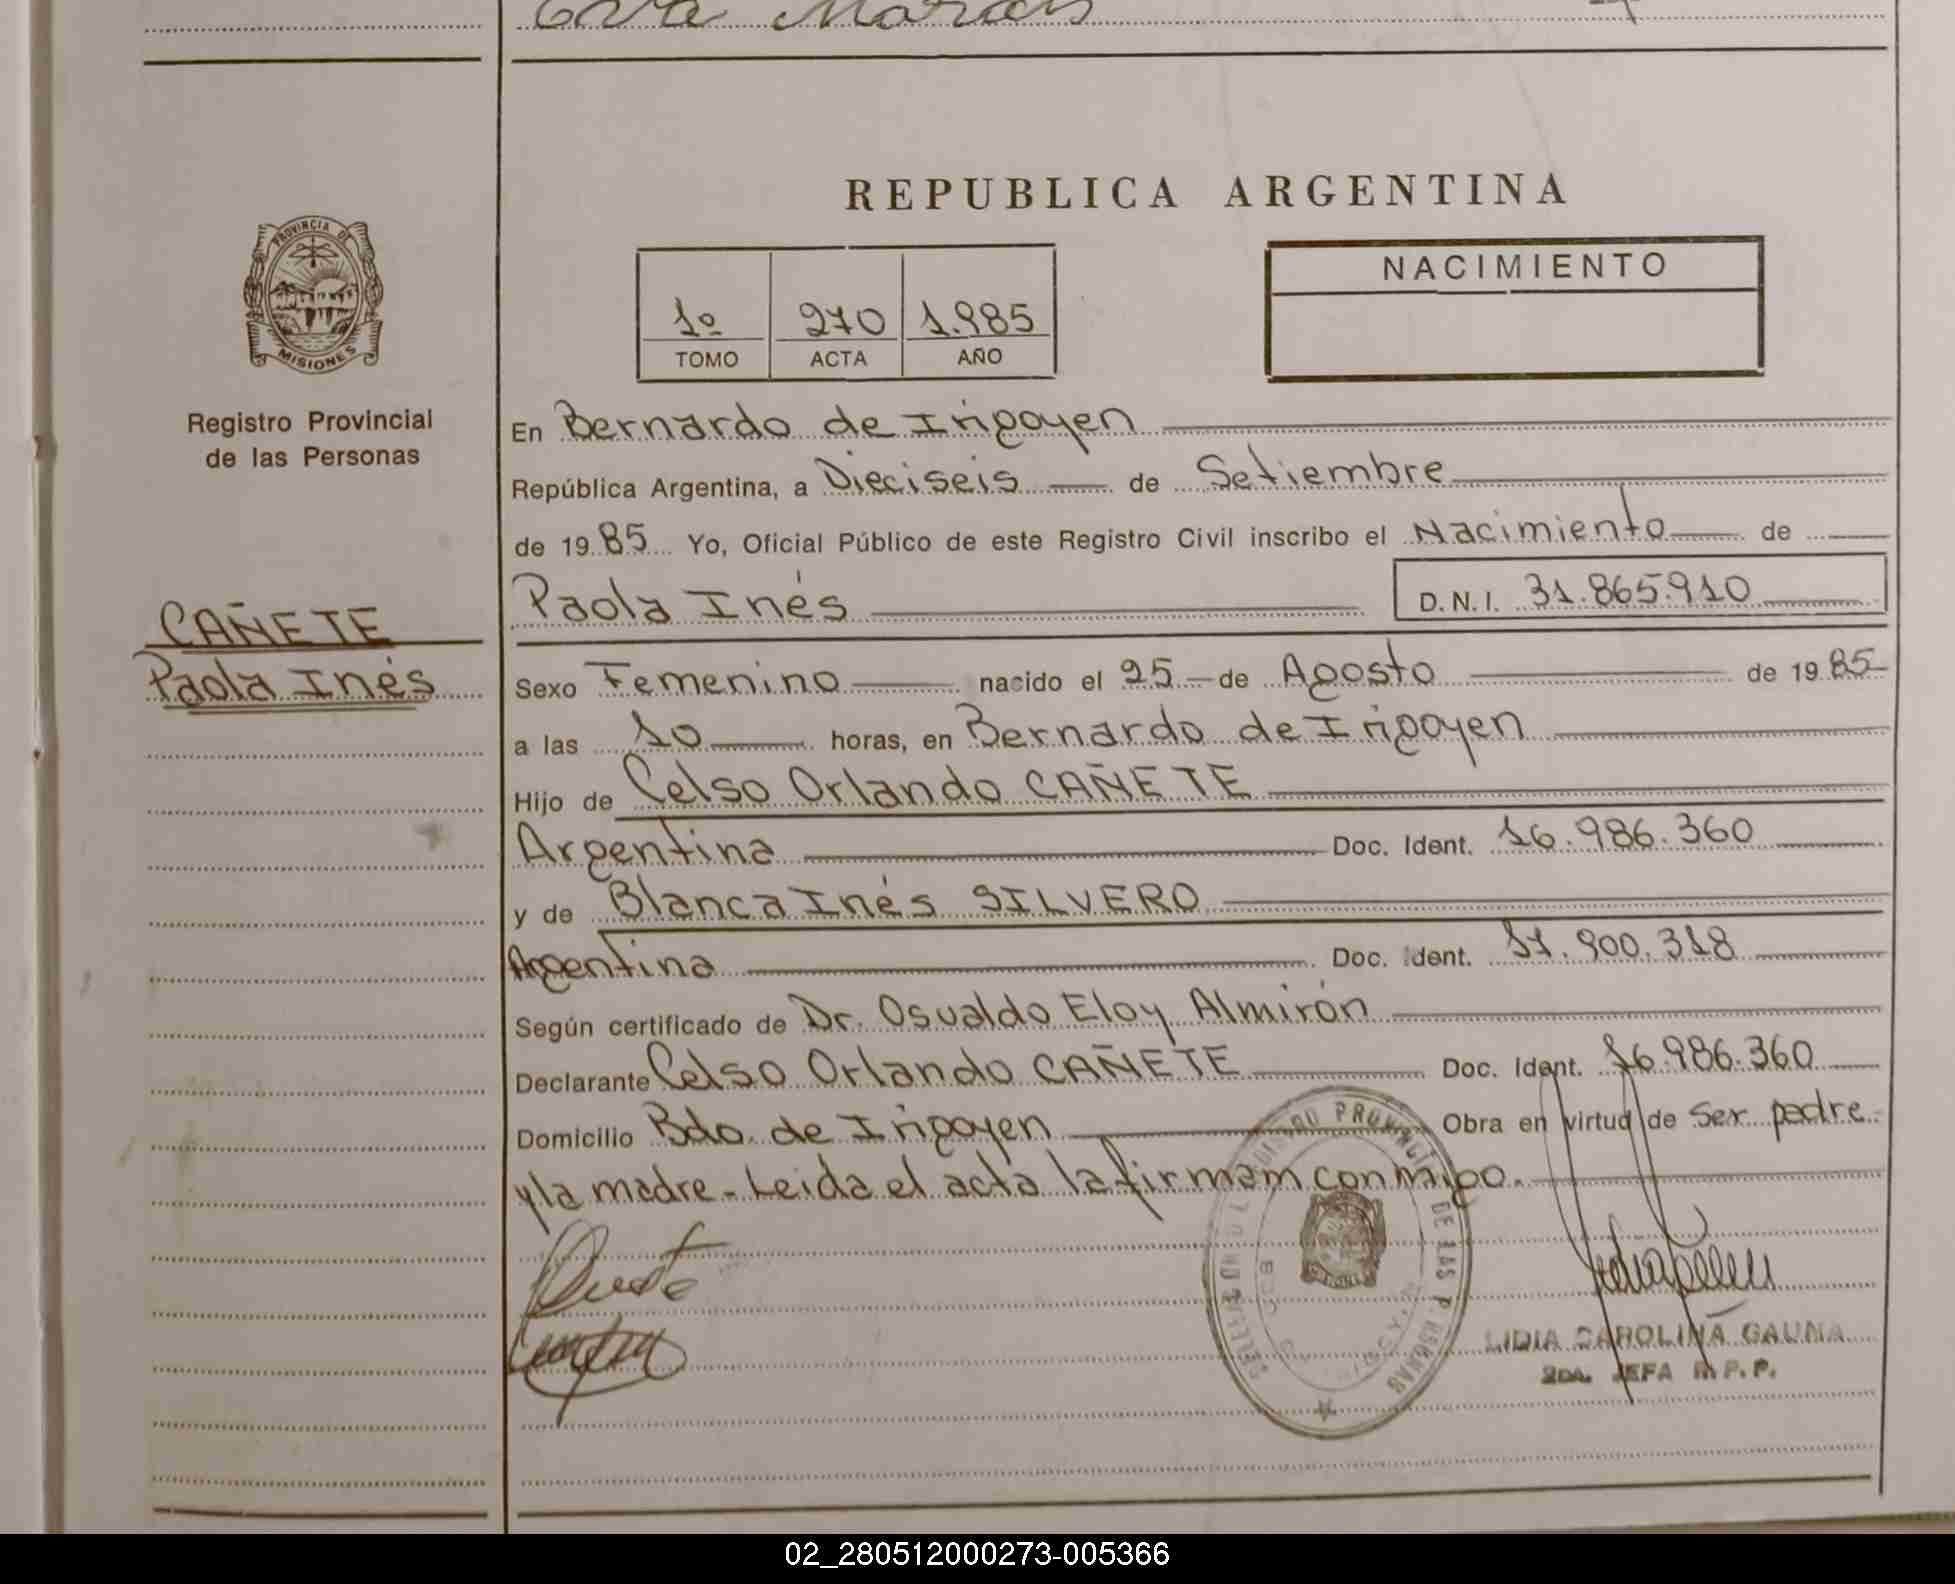 Eva
REPUBLICA ARGENTINA
PROVINCIA DE
MISIONES
Registro Provincial
de las Personas
1º 270 1.985
TOMO ACTA AÑO
NACIMIENTO
En Bernardo de Irigoyen
República Argentina, a Dieciseis de Setiembre
de 1985 Yo, Oficial Público de este Registro Civil inscribo el Nacimiento de
Paola Inés D.N.I. 31.865.910
CAÑETE
Paola Inés
Sexo Femenino nacido el 25 de Agosto de 1985
a las 10 horas, en Bernardo de Irigoyen
Hijo de Celso Orlando CAÑETE
Argentina Doc. Ident. 16.986.360
y de Blanca Inés SILVERO
Argentina Doc. Ident. 17.900.318
Según certificado de Dr. Osvaldo Eloy Almirón
Declarante Celso Orlando CAÑETE Doc. Ident. 16.986.360
Domicilio Bdo. de Irigoyen Obra en virtud de Ser padre
y la madre - Leida el acta la firmam conmigo.
PROVINCI DE LAS P
LIDIA CAROLINA GAUNA
2DA. JEFA R.P.P.
02_280512000273-005366